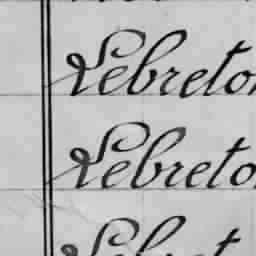 Lebreton
Lebreton
Lebret